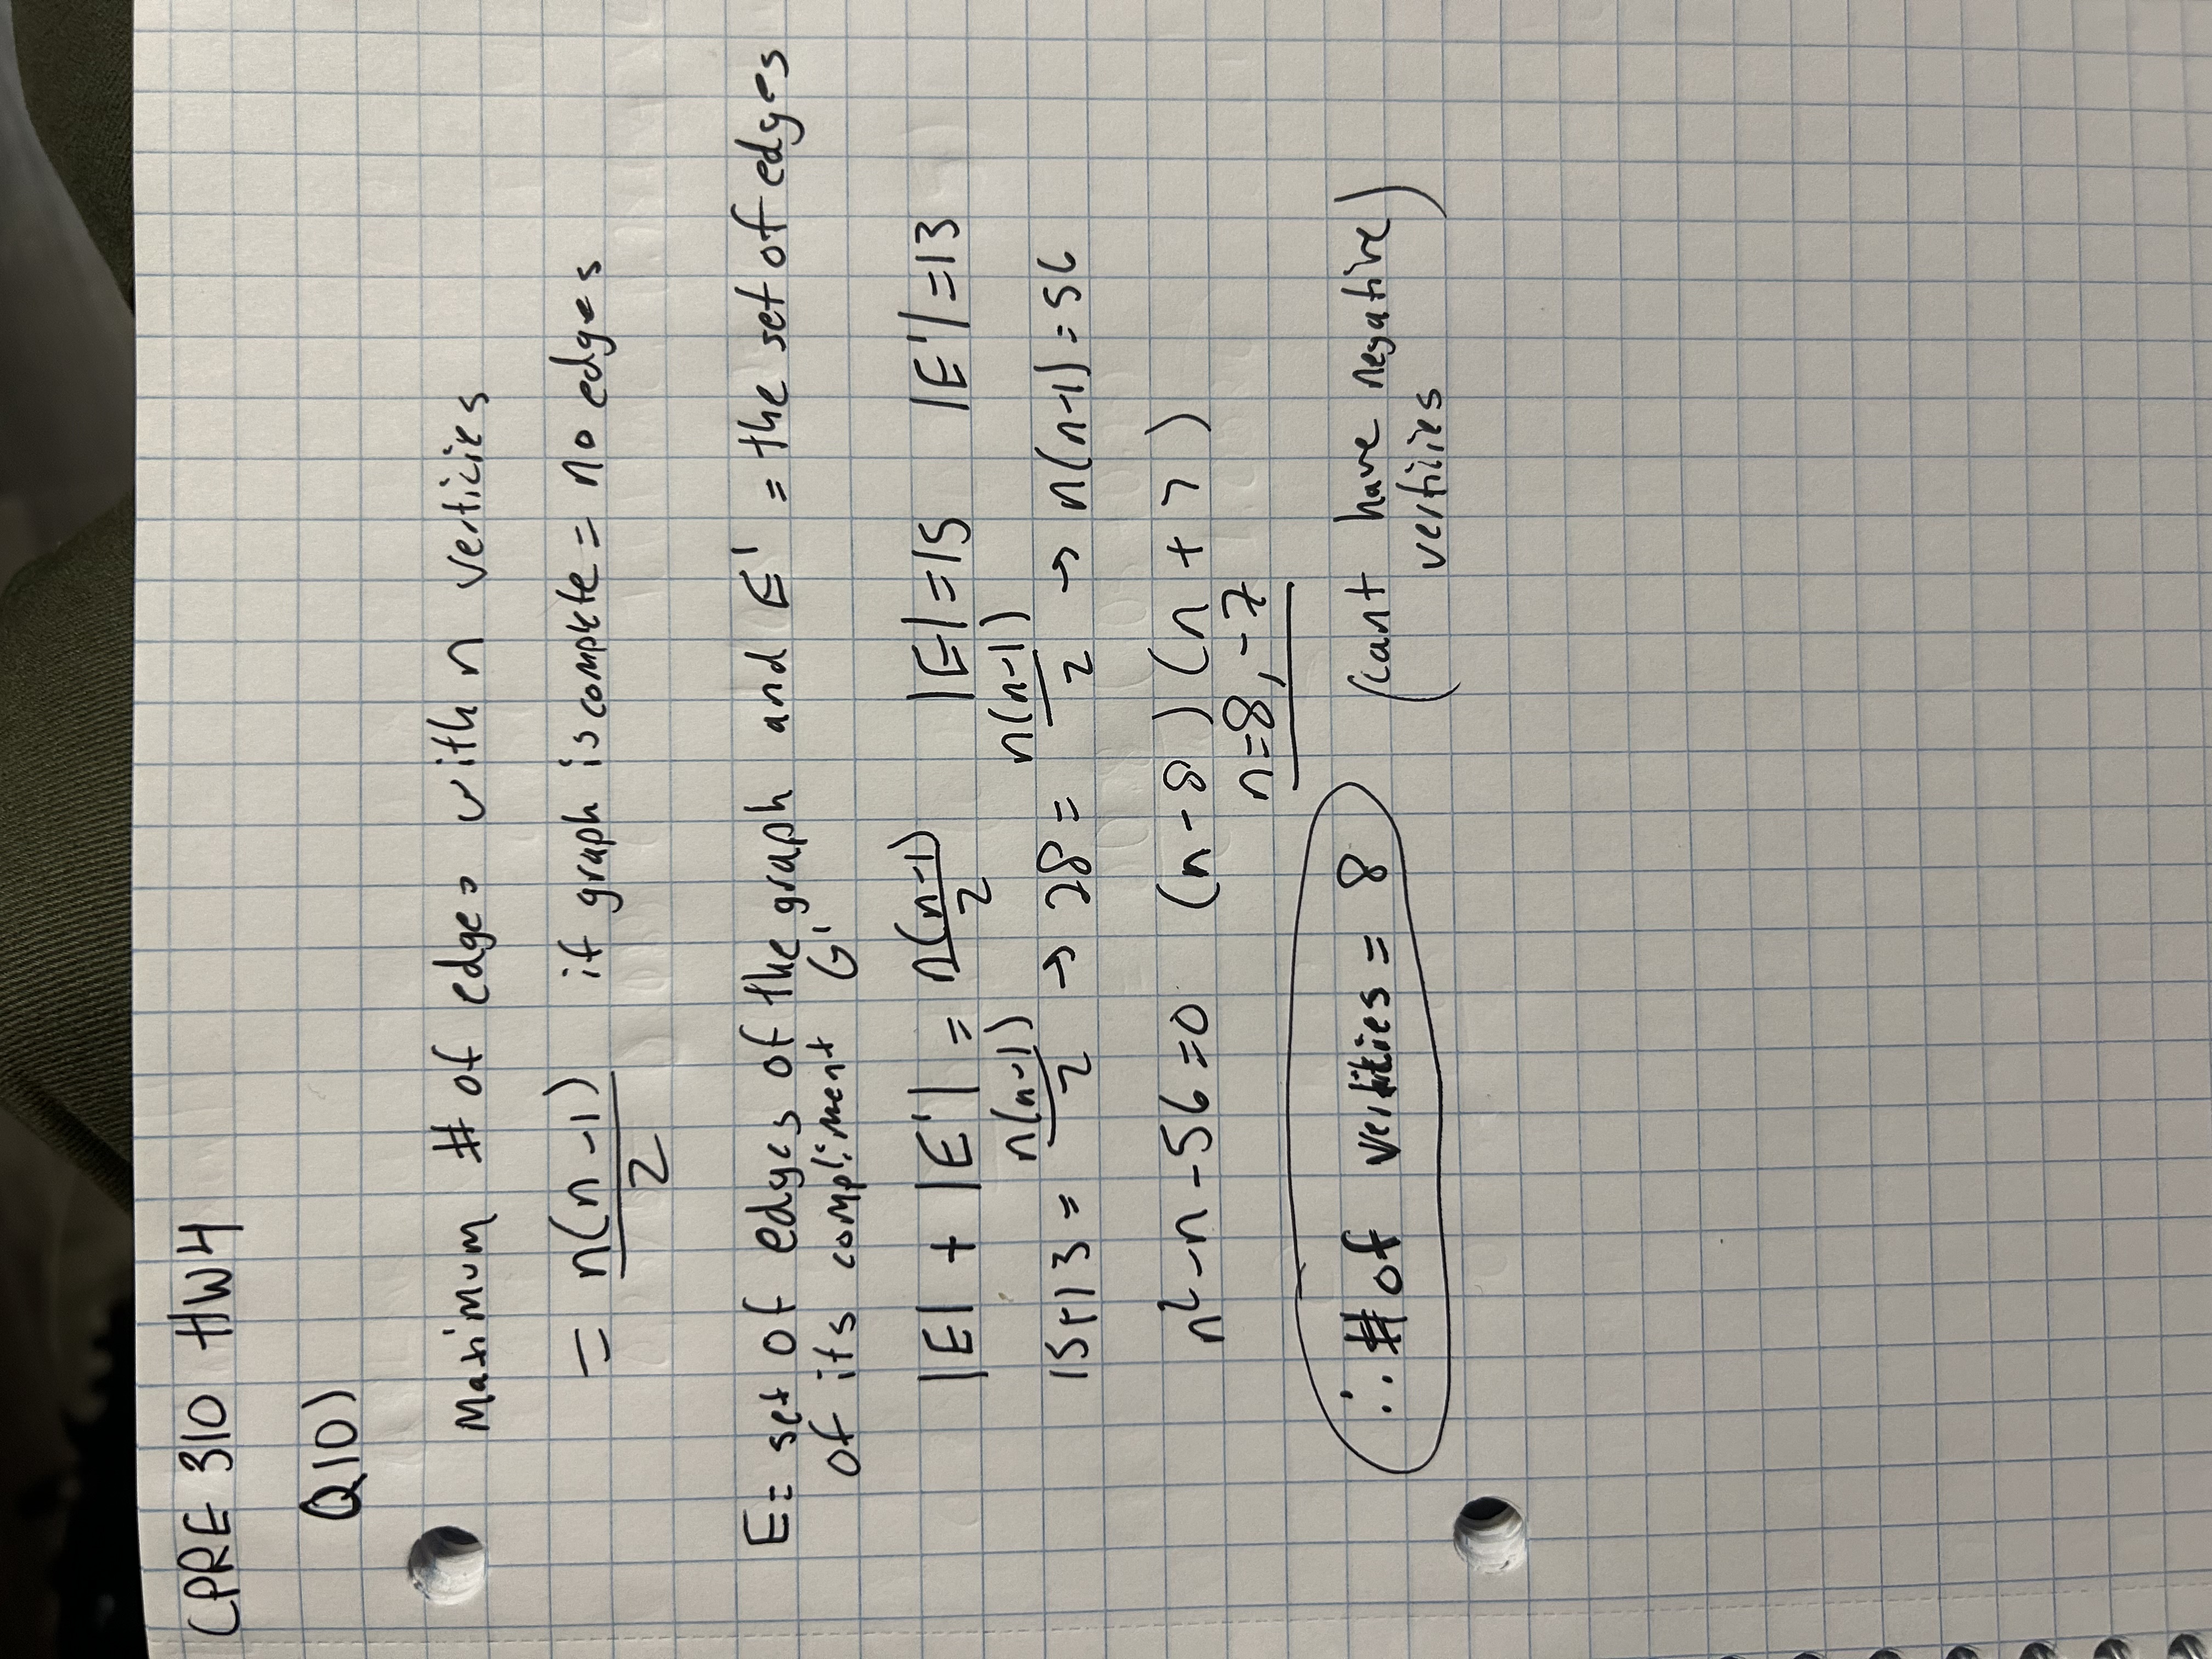 CPRE 310 HW4
Q10)
Maximum # of edges with n verticies
= n(n-1)/2 if graph is complete = no edges
E= set of edges of the graph and E' = the set of edges
of its compliment G'
|E| + |E'| = n(n-1)/2 |E|=15 |E'|=13
15+13 = n(n-1)/2 → 28 = n(n-1)/2 → n(n-1)=56
n²-n-56=0 (n-8)(n+7)
n=8,-7
∴ # of verticies = 8 (cant have negative
verticies)